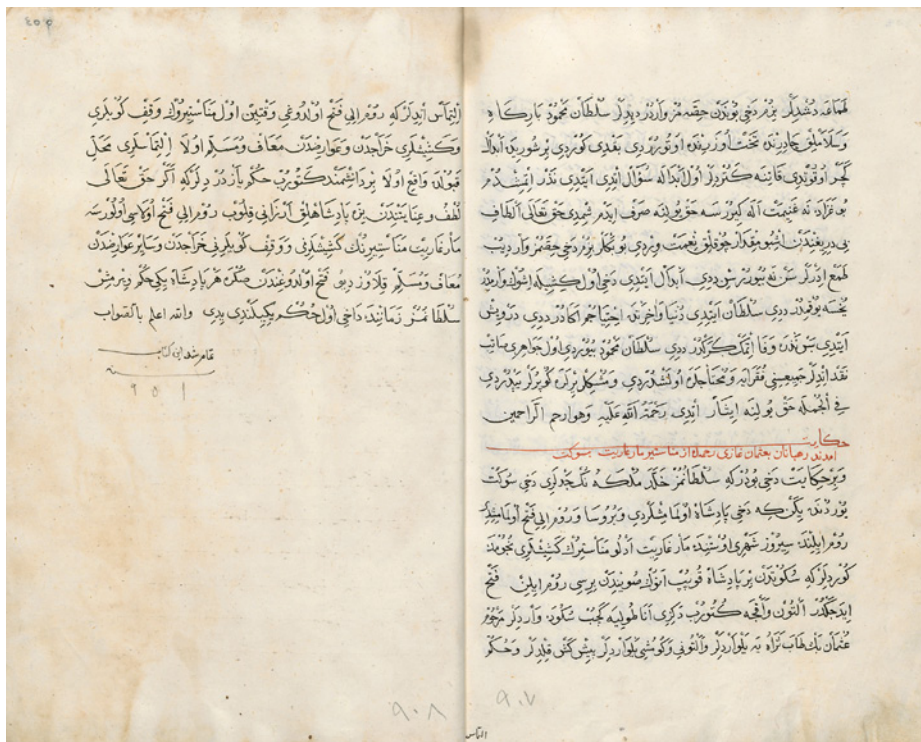 طمعه دشدلر بزم دخی بوندن حقمز واردر دیدلر سلطان محمود بارکاه
تخت اوزرنده اوتورردی بقدی کوردی بر شوریده ابدال
اول ابداله سؤال اتدی ایتدی نذر اتمشدم
بو غزاده نه غنیمت اله کیررسه حق یولنه صرف ایدم شمدی حق تعالی الطاف
بی دریغندن اشبو مقدار چوقلق نعمت ویردی بونکلر بزم دخی حقمز واردیب
طمع ایدرلر سن نه بیوررسن ددی ابدال ایتدی دخی اول کشیله ایشوک وارمیدر
یوقمیدر ددی سلطان ایتدی دنیا واخرتده احتیاجم اکادر ددی درویش
ایتدی پس وفا اتمک کرکدر ددی سلطان محمود بیوردی اول جواهری صاتب
نقد اتدلر جمیعسنی فقرایه ومحتاجلره اولشدردی ومشکل یرلره کوپرلر یپدردی
فی الجمله حق یولنه ایثار اتدی رحمة الله علیه وهو ارحم الراحمین
حکایت
امدند رهبانان بعثمان غازی رحمه از مناستیر مارغاریت بسوکت
وبر حکایت دخی بودر که سلطانمز خلد ملکه نک جدلری دخی سوکت
یوردنده یکن که دخی پادشاه اولمامشلردی وبروسا وروم ایلی فتح اولمامشدی
روم ایلنده سیروز شهری اوستنده مارغاریت ادلو مناستیرک کشیشلری نجومده
کوردیلر که سکوتدن بر پادشاه قوپیپ انوک صویندن برسی روم ایلین فتح
ایدجکدر التون واقچه کتورب دکزی اناطولیه کچب سکوده واردلر مرحوم
عثمان بک طاب ثراه یه یلواردلر والتونی وکومشی یلواردلر پیشکش قلدلر وحکم
التماس
التماس اتدلر که روم ایلی فتح اولدوغی وقتین اول مناستیروک وقف کویلری
وکشیشلری خراجدن وعوارضدن معاف ومسلم اولا التماسلری محل
قبولده واقع اولا بر دانشمند کتورب حکم یازدردلر که اکر حق تعالی
لطف وعنایتندن بزه پادشاهلق ارزانی قلوب روم ایلی فتح اولاسی اولورسه
مارغاریت مناستیرنک کشیشلرنی ووقف کویلرنی خراجدن وسایر عوارضدن
معاف ومسلم قلاوز دیو فتح اولدوغندن صکره هر پادشاه یکی حکم ویرمش
سلطانمز زماننده داخی اول حکم یکیلندی یدی والله اعلم بالصواب
تمام شد این کتاب
سنه
٩٥١